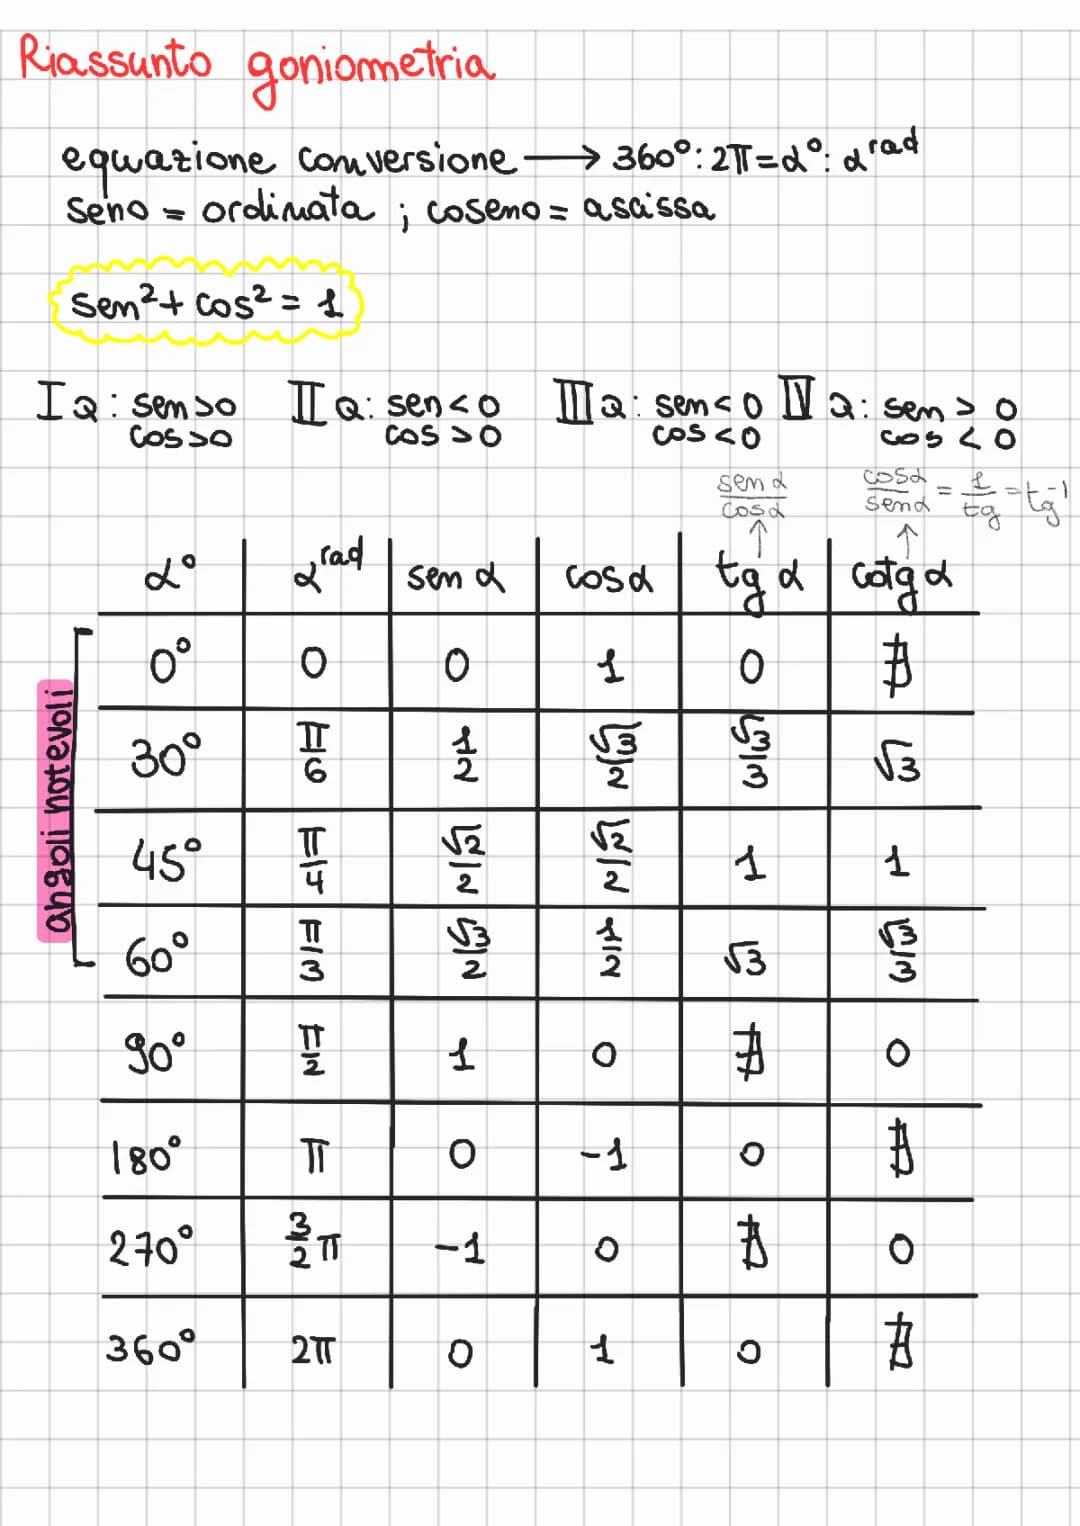 Riassunto goniometria
equazione conversione → 360° : 2π = α° : α^rad
seno = ordinata ; coseno = ascissa
sen² + cos² = 1
I Q : sen >0 II Q : sen < 0 III Q : sen < 0 IV Q : sen > 0
cos >0 cos > 0 cos < 0 cos < 0
senα/cosα cosα/senα = 1/tg = tg⁻¹
α° α^rad sen α cos α tg α cotg α
angoli notevoli
0° 0 0 1 0 ∄
30° π/6 1/2 √3/2 √3/3 √3
45° π/4 √2/2 √2/2 1 1
60° π/3 √3/2 1/2 √3 √3/3
90° π/2 1 0 ∄ 0
180° π 0 -1 0 ∄
270° 3/2 π -1 0 ∄ 0
360° 2π 0 1 0 ∄